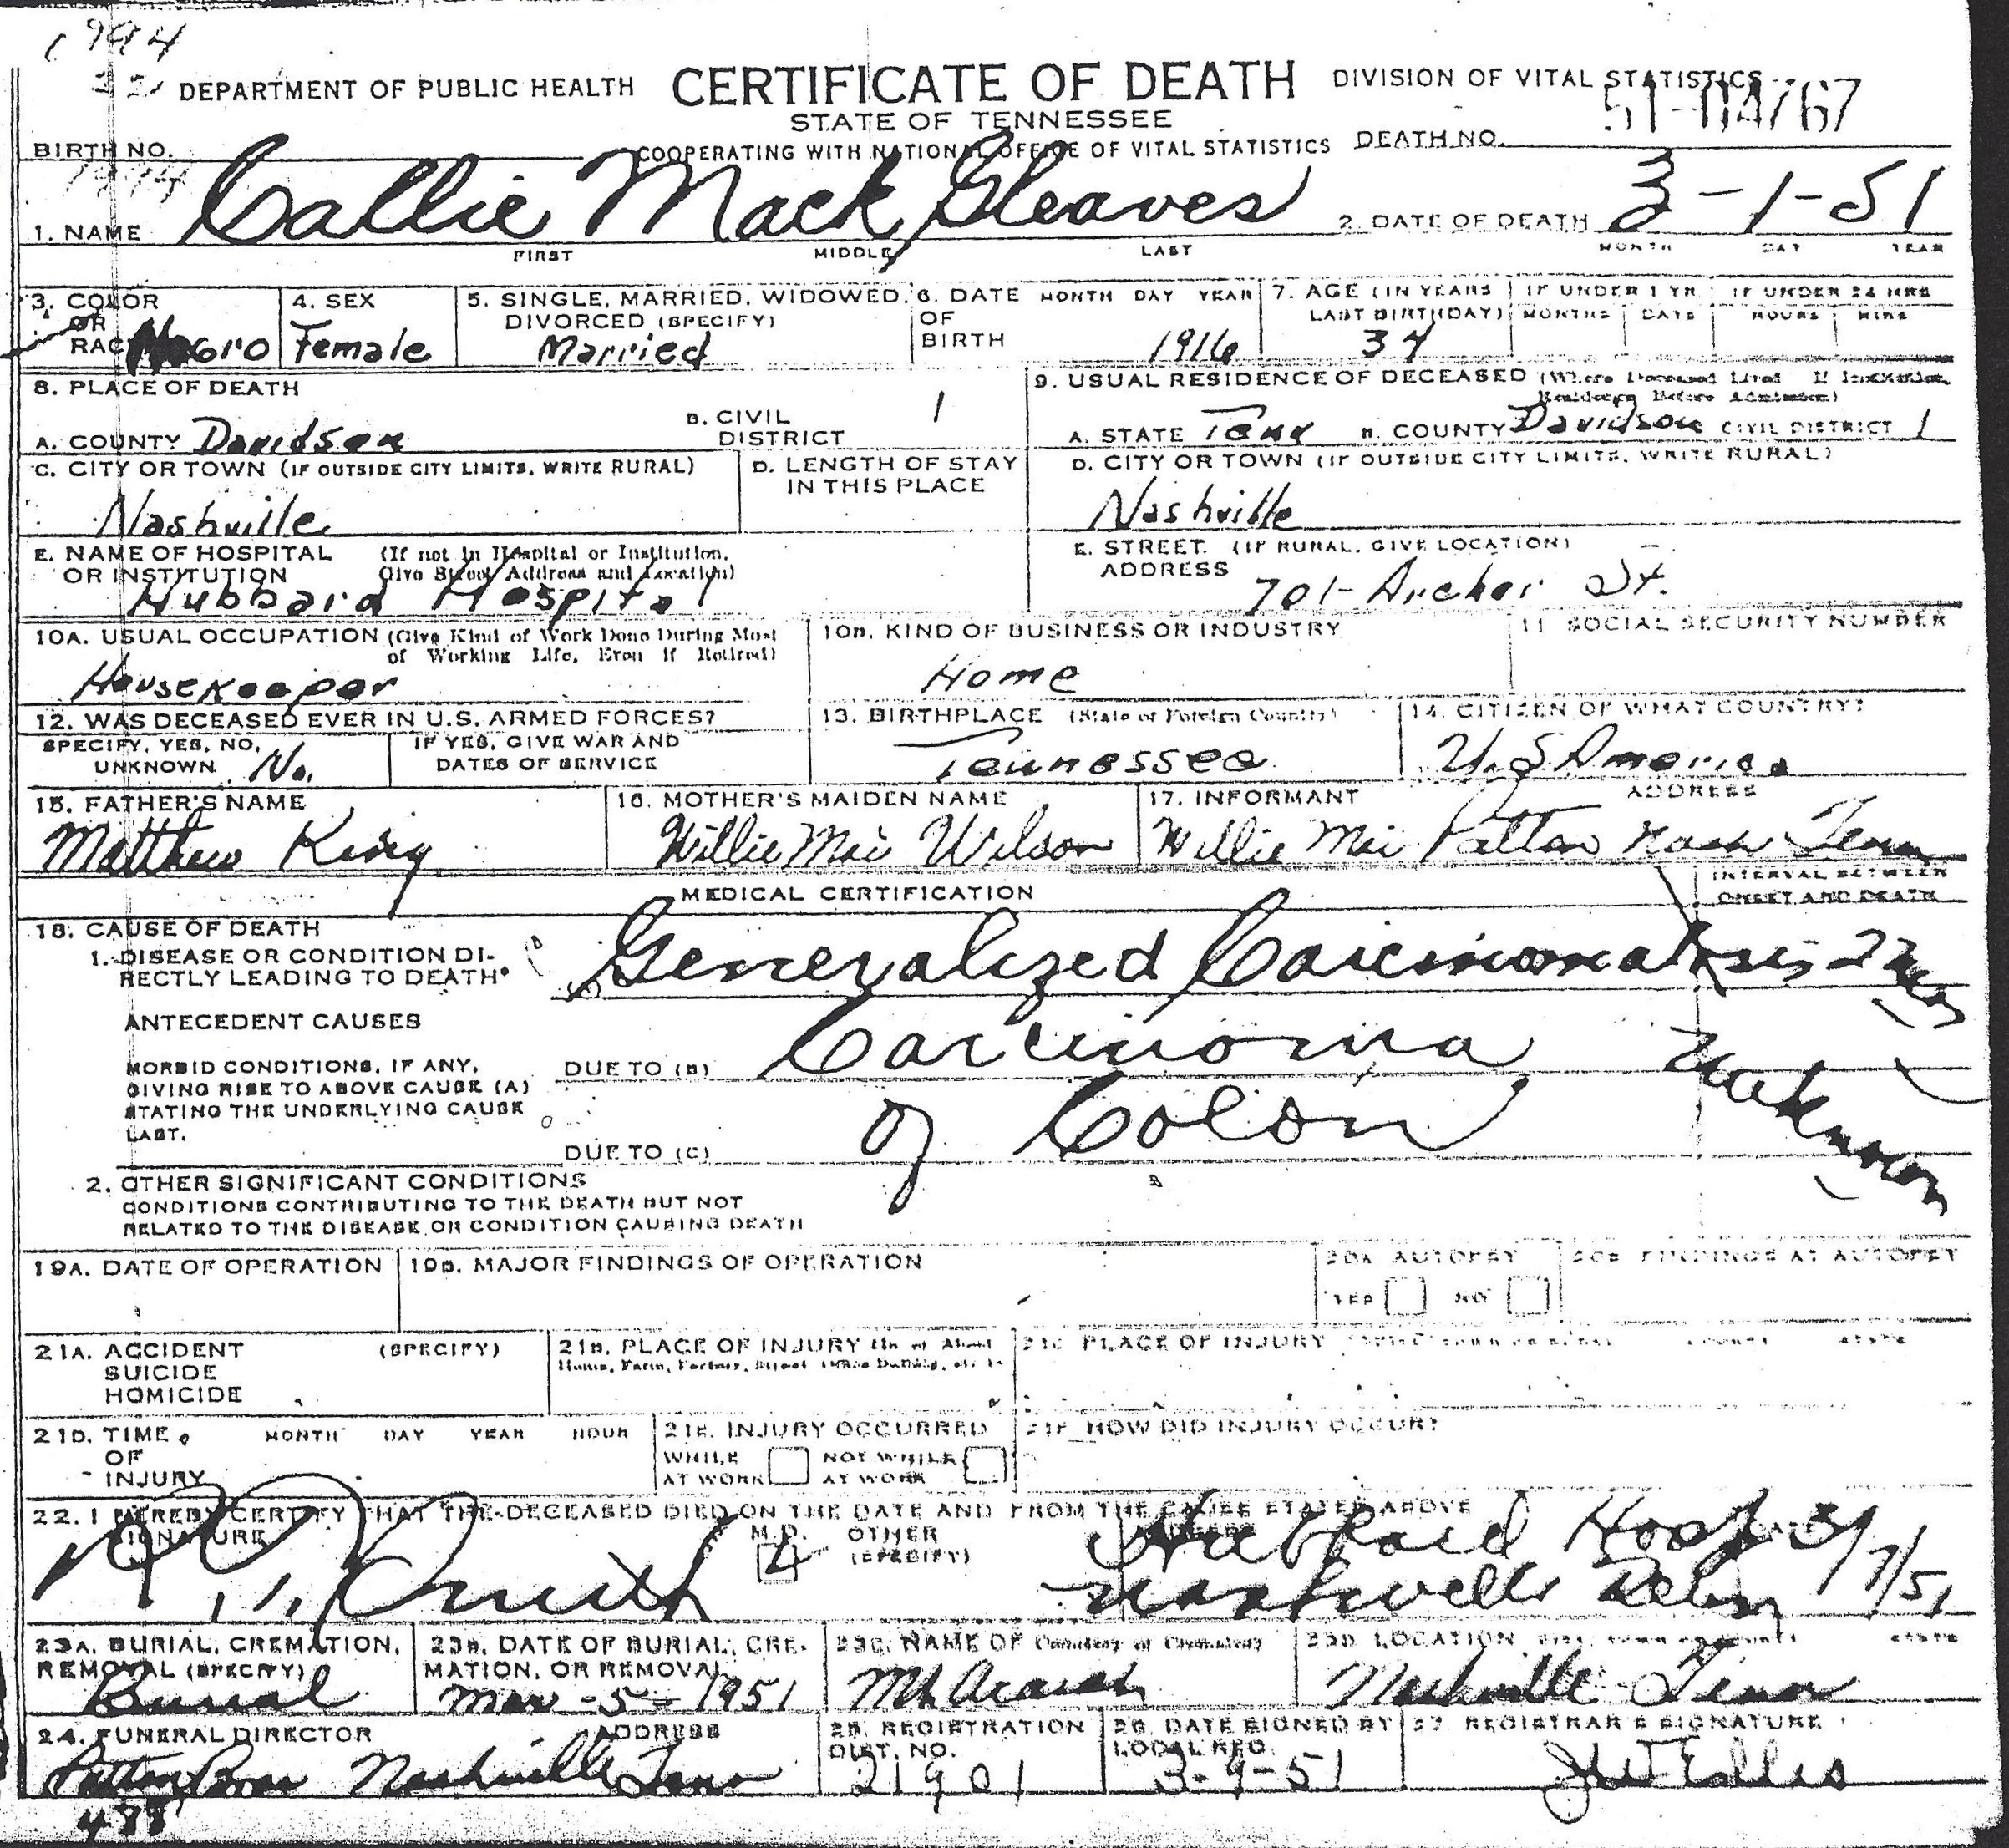 1994
DEPARTMENT OF PUBLIC HEALTH CERTIFICATE OF DEATH DIVISION OF VITAL STATISTICS
STATE OF TENNESSEE 51-04767
BIRTH NO. COOPERATING WITH NATIONAL OFFICE OF VITAL STATISTICS DEATH NO.
1. NAME Callie Mack Gleaves 2. DATE OF DEATH 3-1-51
FIRST MIDDLE LAST MONTH DAY YEAR
3. COLOR OR RACE Negro 4. SEX Female 5. SINGLE, MARRIED, WIDOWED, DIVORCED (SPECIFY) Married 6. DATE OF BIRTH MONTH DAY YEAR 1916 7. AGE (IN YEARS LAST BIRTHDAY) 34 IF UNDER 1 YR MONTHS DAYS IF UNDER 24 HRS HOURS MINS
8. PLACE OF DEATH
A. COUNTY Davidson B. CIVIL DISTRICT 1
9. USUAL RESIDENCE OF DECEASED (Where Deceased Lived If Institution, Residence Before Admission)
A. STATE Tenn B. COUNTY Davidson CIVIL DISTRICT 1
C. CITY OR TOWN (IF OUTSIDE CITY LIMITS, WRITE RURAL) Nashville D. LENGTH OF STAY IN THIS PLACE
D. CITY OR TOWN (IF OUTSIDE CITY LIMITS, WRITE RURAL) Nashville
E. NAME OF HOSPITAL OR INSTITUTION (If not in Hospital or Institution, Give Street Address and Location) Hubbard Hospital
E. STREET ADDRESS (IF RURAL, GIVE LOCATION) 701-Archer St.
10A. USUAL OCCUPATION (Give Kind of Work Done During Most of Working Life, Even if Retired) Housekeeper
10B. KIND OF BUSINESS OR INDUSTRY Home
11 SOCIAL SECURITY NUMBER
12. WAS DECEASED EVER IN U.S. ARMED FORCES?
SPECIFY, YES, NO, UNKNOWN No. IF YES, GIVE WAR AND DATES OF SERVICE
13. BIRTHPLACE (State or Foreign Country) Tennessee
14. CITIZEN OF WHAT COUNTRY? U.S America
15. FATHER'S NAME Matthew King
16. MOTHER'S MAIDEN NAME Willie Mai Wilson
17. INFORMANT ADDRESS Willie Mai Patton Nash Tenn
MEDICAL CERTIFICATION INTERVAL BETWEEN ONSET AND DEATH
18. CAUSE OF DEATH
1. DISEASE OR CONDITION DIRECTLY LEADING TO DEATH* Generalized Carcinomatosis
ANTECEDENT CAUSES
MORBID CONDITIONS, IF ANY, GIVING RISE TO ABOVE CAUSE (A) STATING THE UNDERLYING CAUSE LAST.
DUE TO (B) Carcinoma Unknown
DUE TO (C) of Colon
2. OTHER SIGNIFICANT CONDITIONS
CONDITIONS CONTRIBUTING TO THE DEATH BUT NOT
RELATED TO THE DISEASE OR CONDITION CAUSING DEATH
19A. DATE OF OPERATION 19B. MAJOR FINDINGS OF OPERATION 20A AUTOPSY YES NO 20B FINDINGS AT AUTOPSY
21A. ACCIDENT SUICIDE HOMICIDE (SPECIFY) 21B. PLACE OF INJURY (In or About Home, Farm, Factory, Street, Office Building, etc.) 21C PLACE OF INJURY COUNTY STATE
21D. TIME OF INJURY MONTH DAY YEAR HOUR 21E. INJURY OCCURRED WHILE AT WORK NOT WHILE AT WORK 21F. HOW DID INJURY OCCUR?
22. I HEREBY CERTIFY THAT THE DECEASED DIED ON THE DATE AND FROM THE CAUSE STATED ABOVE
SIGNATURE Smith M.D. OTHER (SPECIFY) Hubbard Hosp 3/7/51
Nashville Tenn
23A. BURIAL, CREMATION, REMOVAL (SPECIFY) Burial 23B. DATE OF BURIAL, CREMATION, OR REMOVAL Mar-5-1951 23C. NAME OF Cemetery or Crematory Mt Ararat 23D LOCATION Nashville Tenn
24. FUNERAL DIRECTOR ADDRESS Patton Bros Nashville Tenn 25. REGISTRATION DIST. NO. 21901 26. DATE SIGNED BY LOCAL REG. 3-9-51 27 REGISTRAR'S SIGNATURE
488